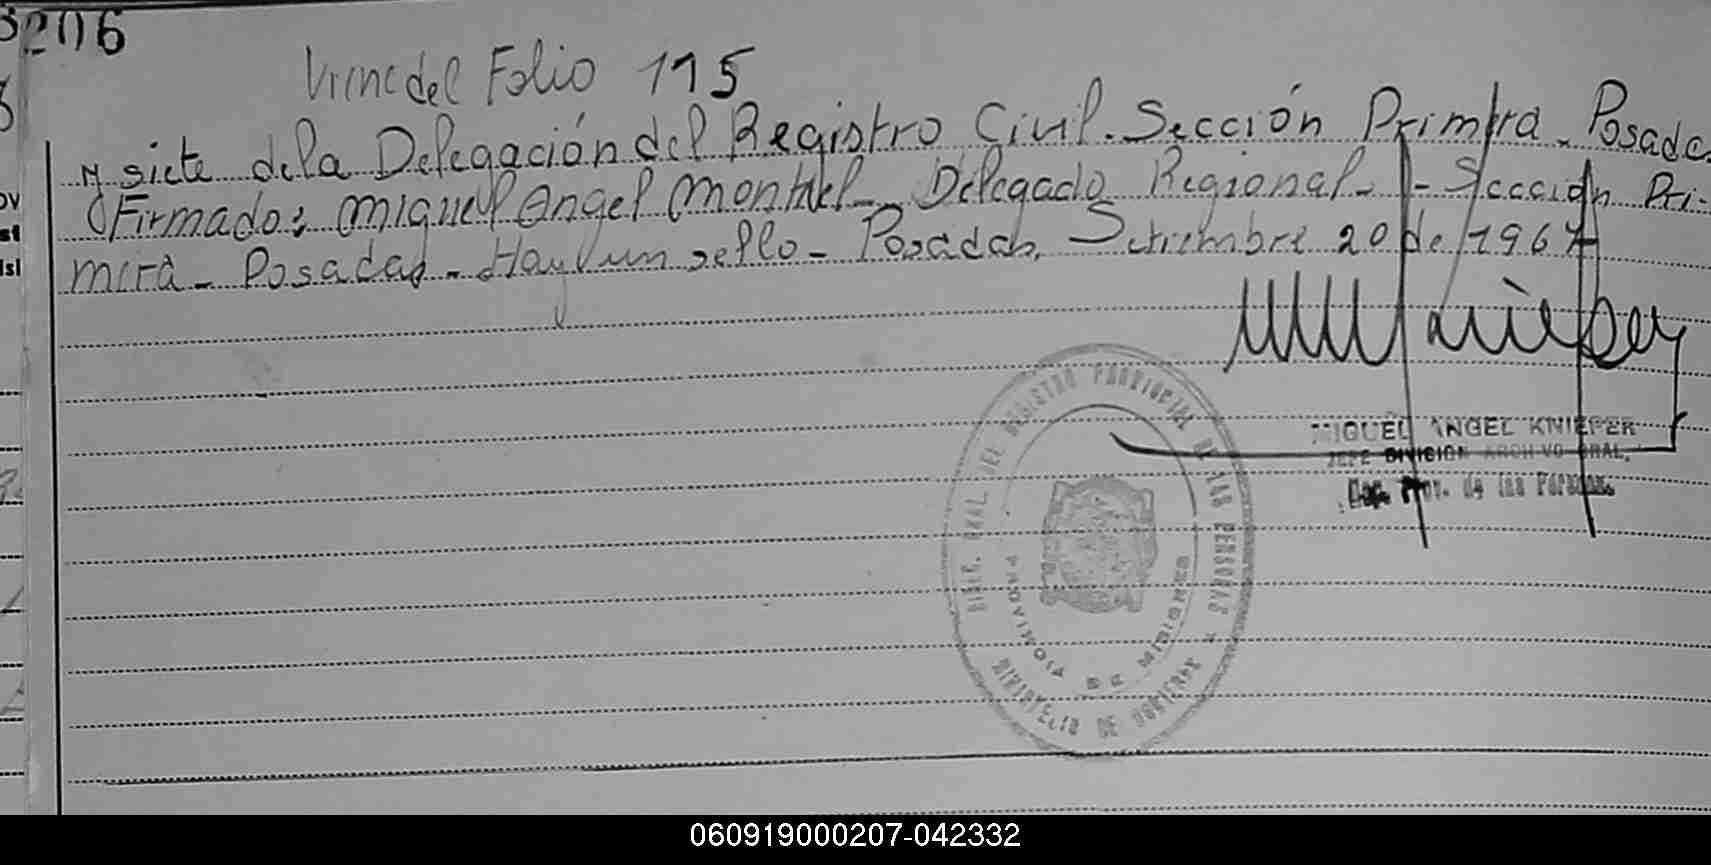 3206
Viene del Folio 115
y siete de la Delegación del Registro Civil. Sección Primera. Posadas
Firmado: Miguel Angel Montiel - Delegado Regional - - Sección Pri-
mera - Posadas - Hay un sello - Posadas, Setiembre 20 de 1967
MIGUEL ANGEL KNIEPER
JEFE DIVISION ARCHIVO GRAL.
Prov. de las Personas
DIREC. GRAL DEL REGISTRO PROVINCIAL DE LAS PERSONAS
PROVINCIA DE MISIONES
MINISTERIO DE GOBIERNO
060919000207-042332